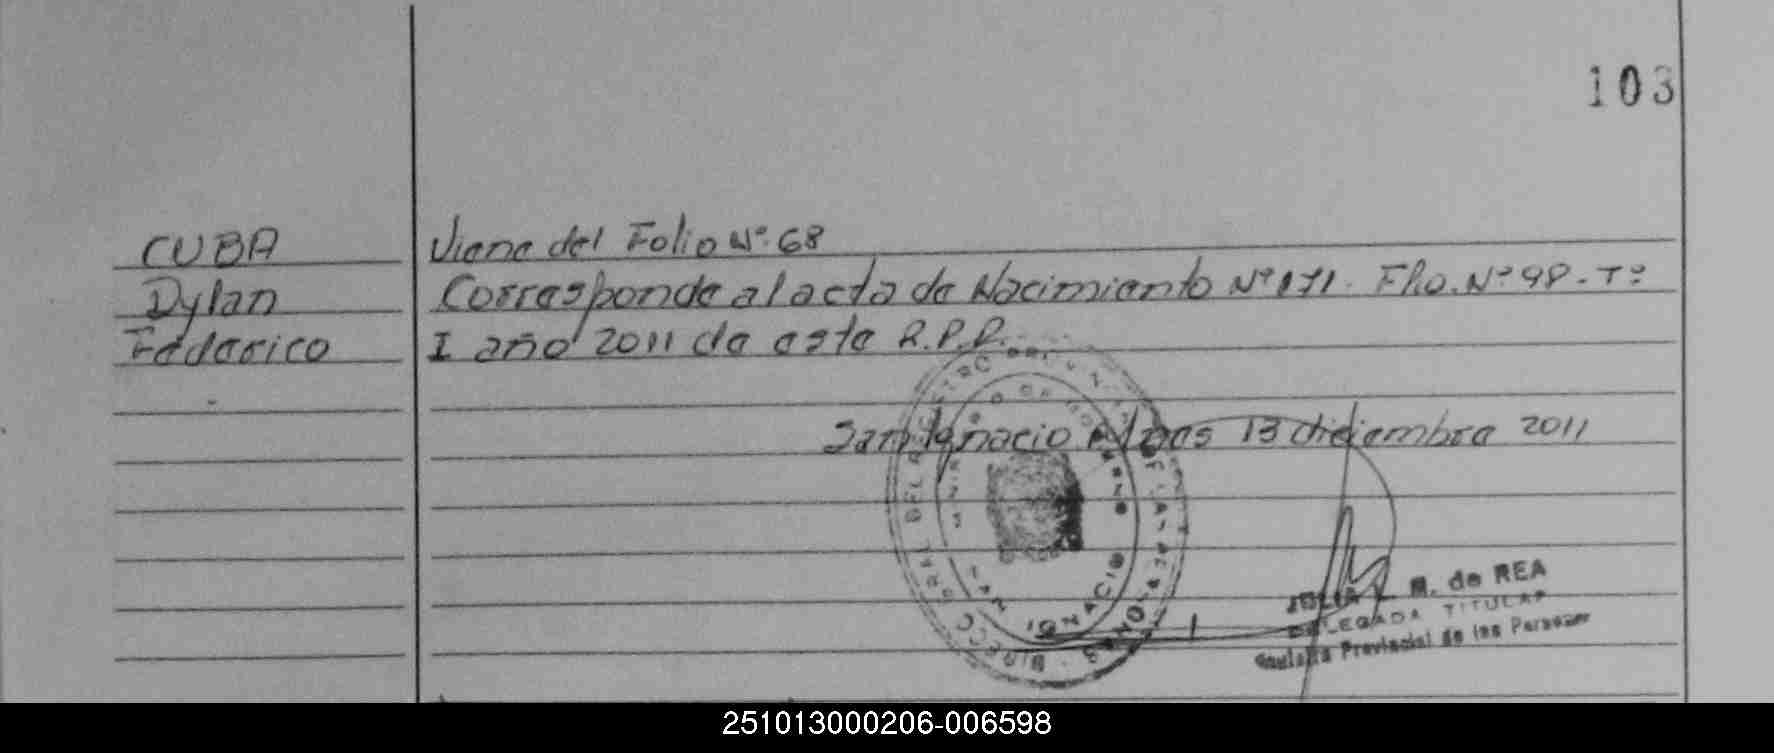 103
CUBA Viene del Folio Nº 68
Dylan Corresponde al acta de Nacimiento Nº 171. Flio. Nº 98 - Tº
Federico I año 2011 de este R.P.P.
San Ignacio 13 diciembre 2011
DEL
IGNACIO
M. de REA
DELEGADA TITULAR
Provincial de las Personas
251013000206-006598